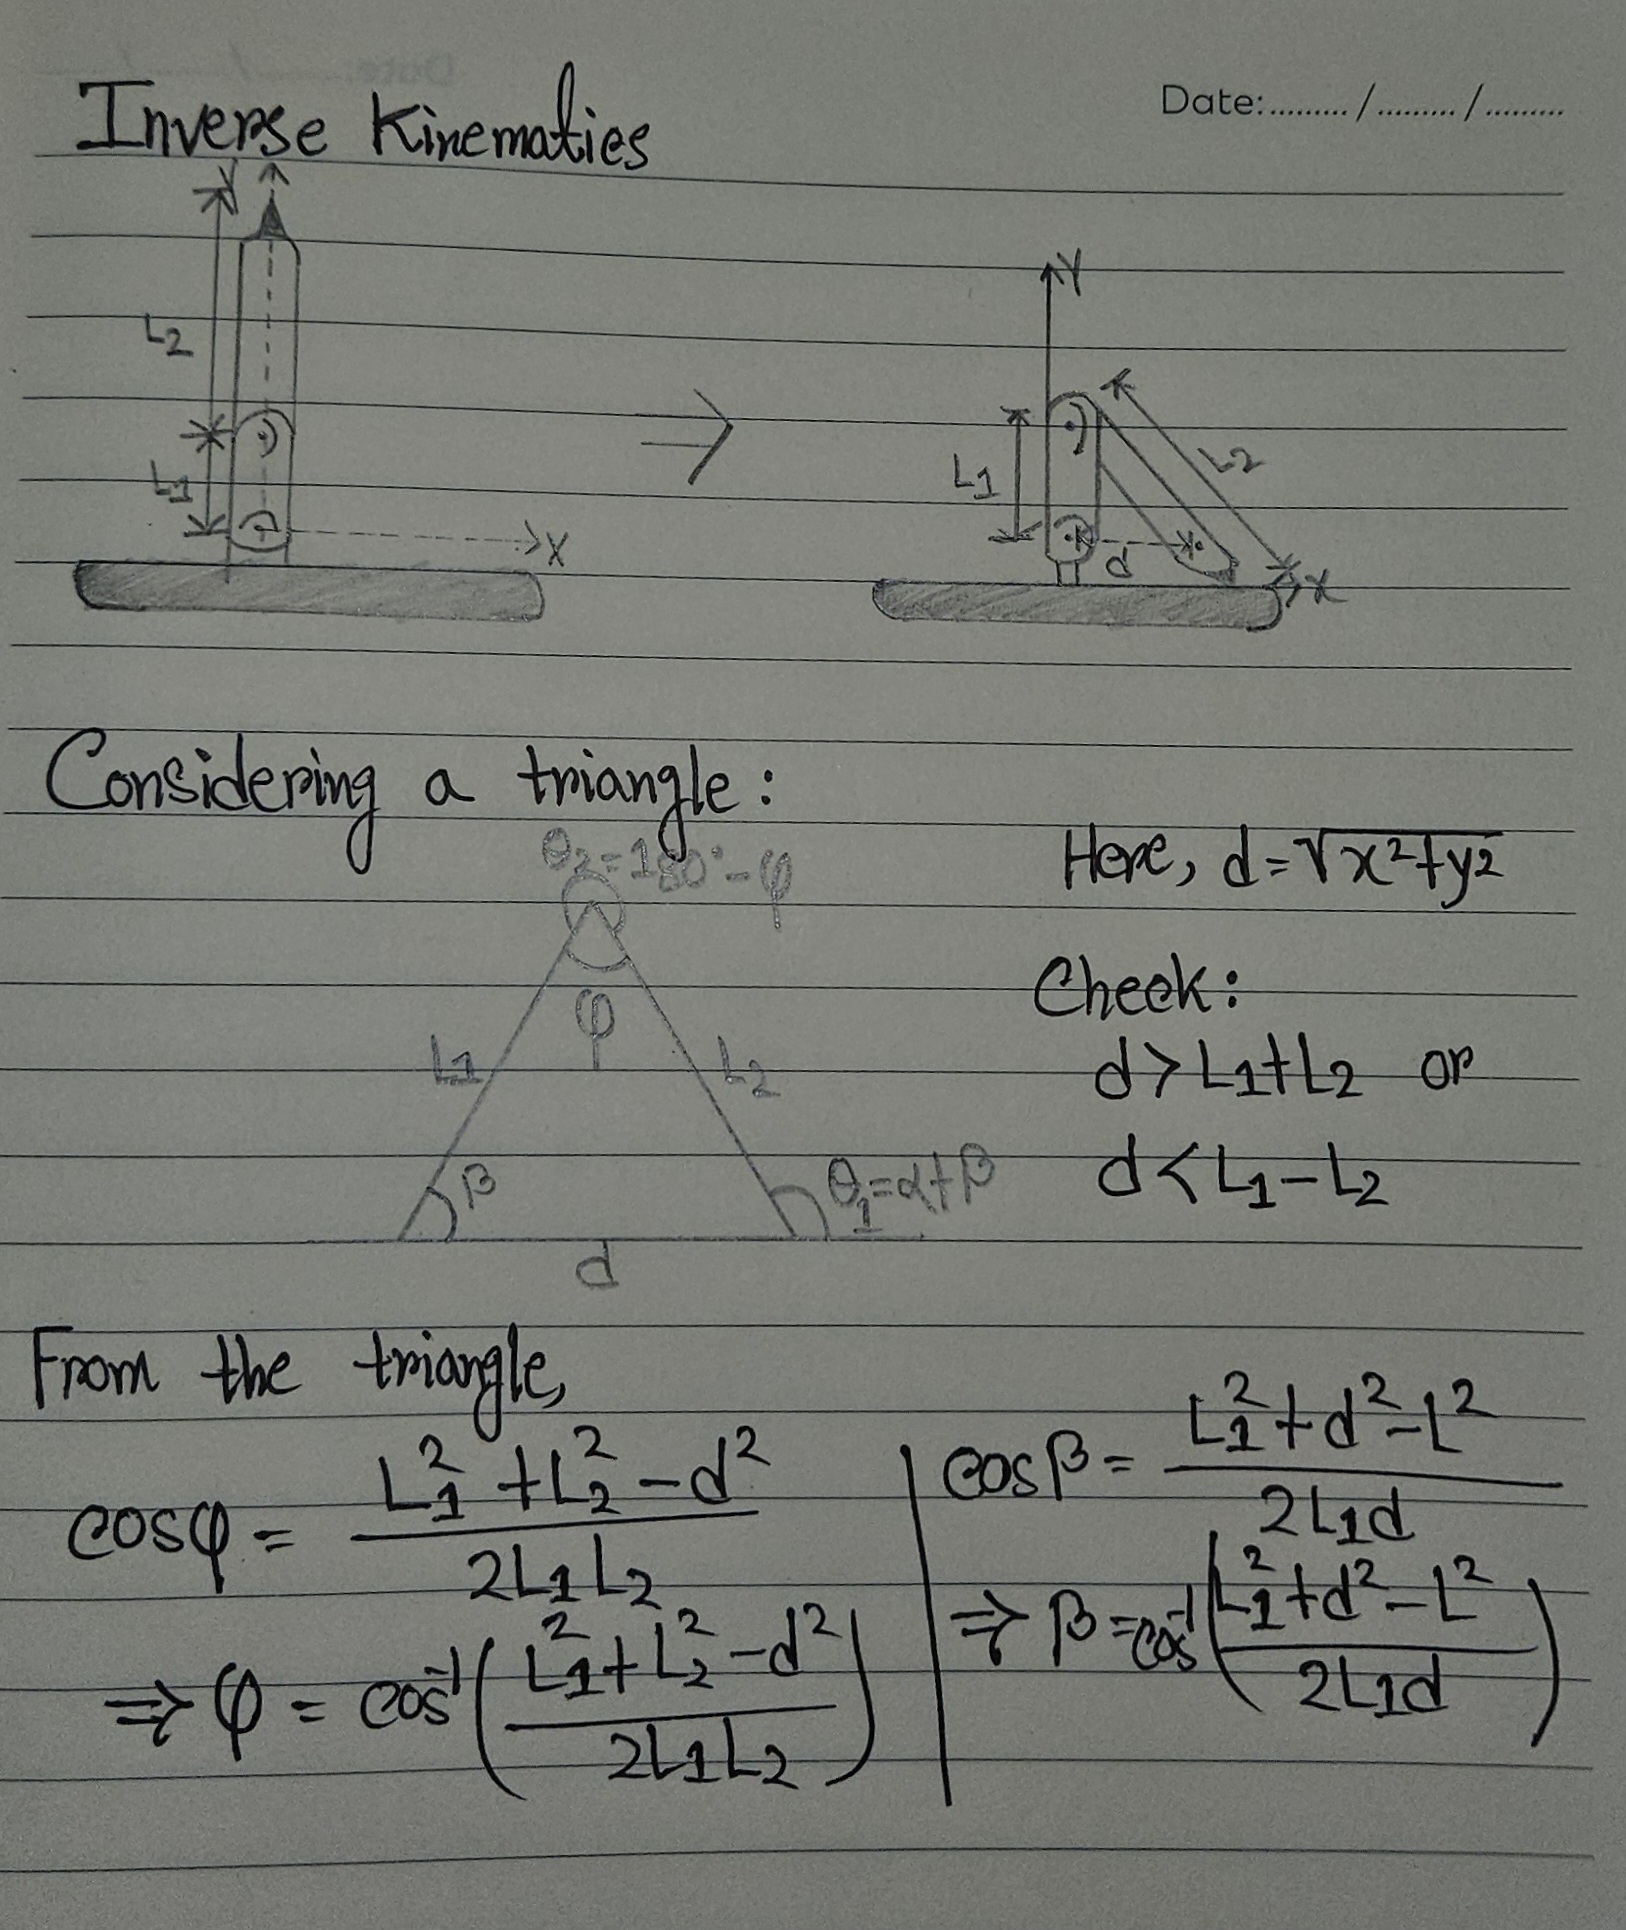 Date:........./........./.........
Inverse Kinematics
Y
L2
L1
X
⇒
Y
L1
L2
d
X
Considering a triangle:
θ2=180°-φ
Here, d=√x²+y²
φ
Check:
L1
L2
d>L1+L2 or
β
θ1=α+β
d<L1-L2
d
From the triangle,
cosφ = L1²+L2²-d² / 2L1L2
⇒ φ = cos⁻¹(L1²+L2²-d² / 2L1L2)
cosβ = L1²+d²-L² / 2L1d
⇒ β = cos⁻¹(L1²+d²-L² / 2L1d)